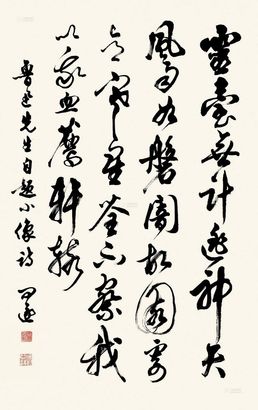 靈臺無計逃神矢
風雨如磐闇故園寄
意寒星荃不察我
以我血薦軒轅
魯迅先生自題小像詩